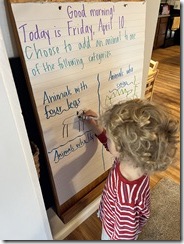 Good morning!
Today is Friday, April 10
Choose to add an animal to one
of the following categories.
Animals with
four legs
Animals who
Animals who